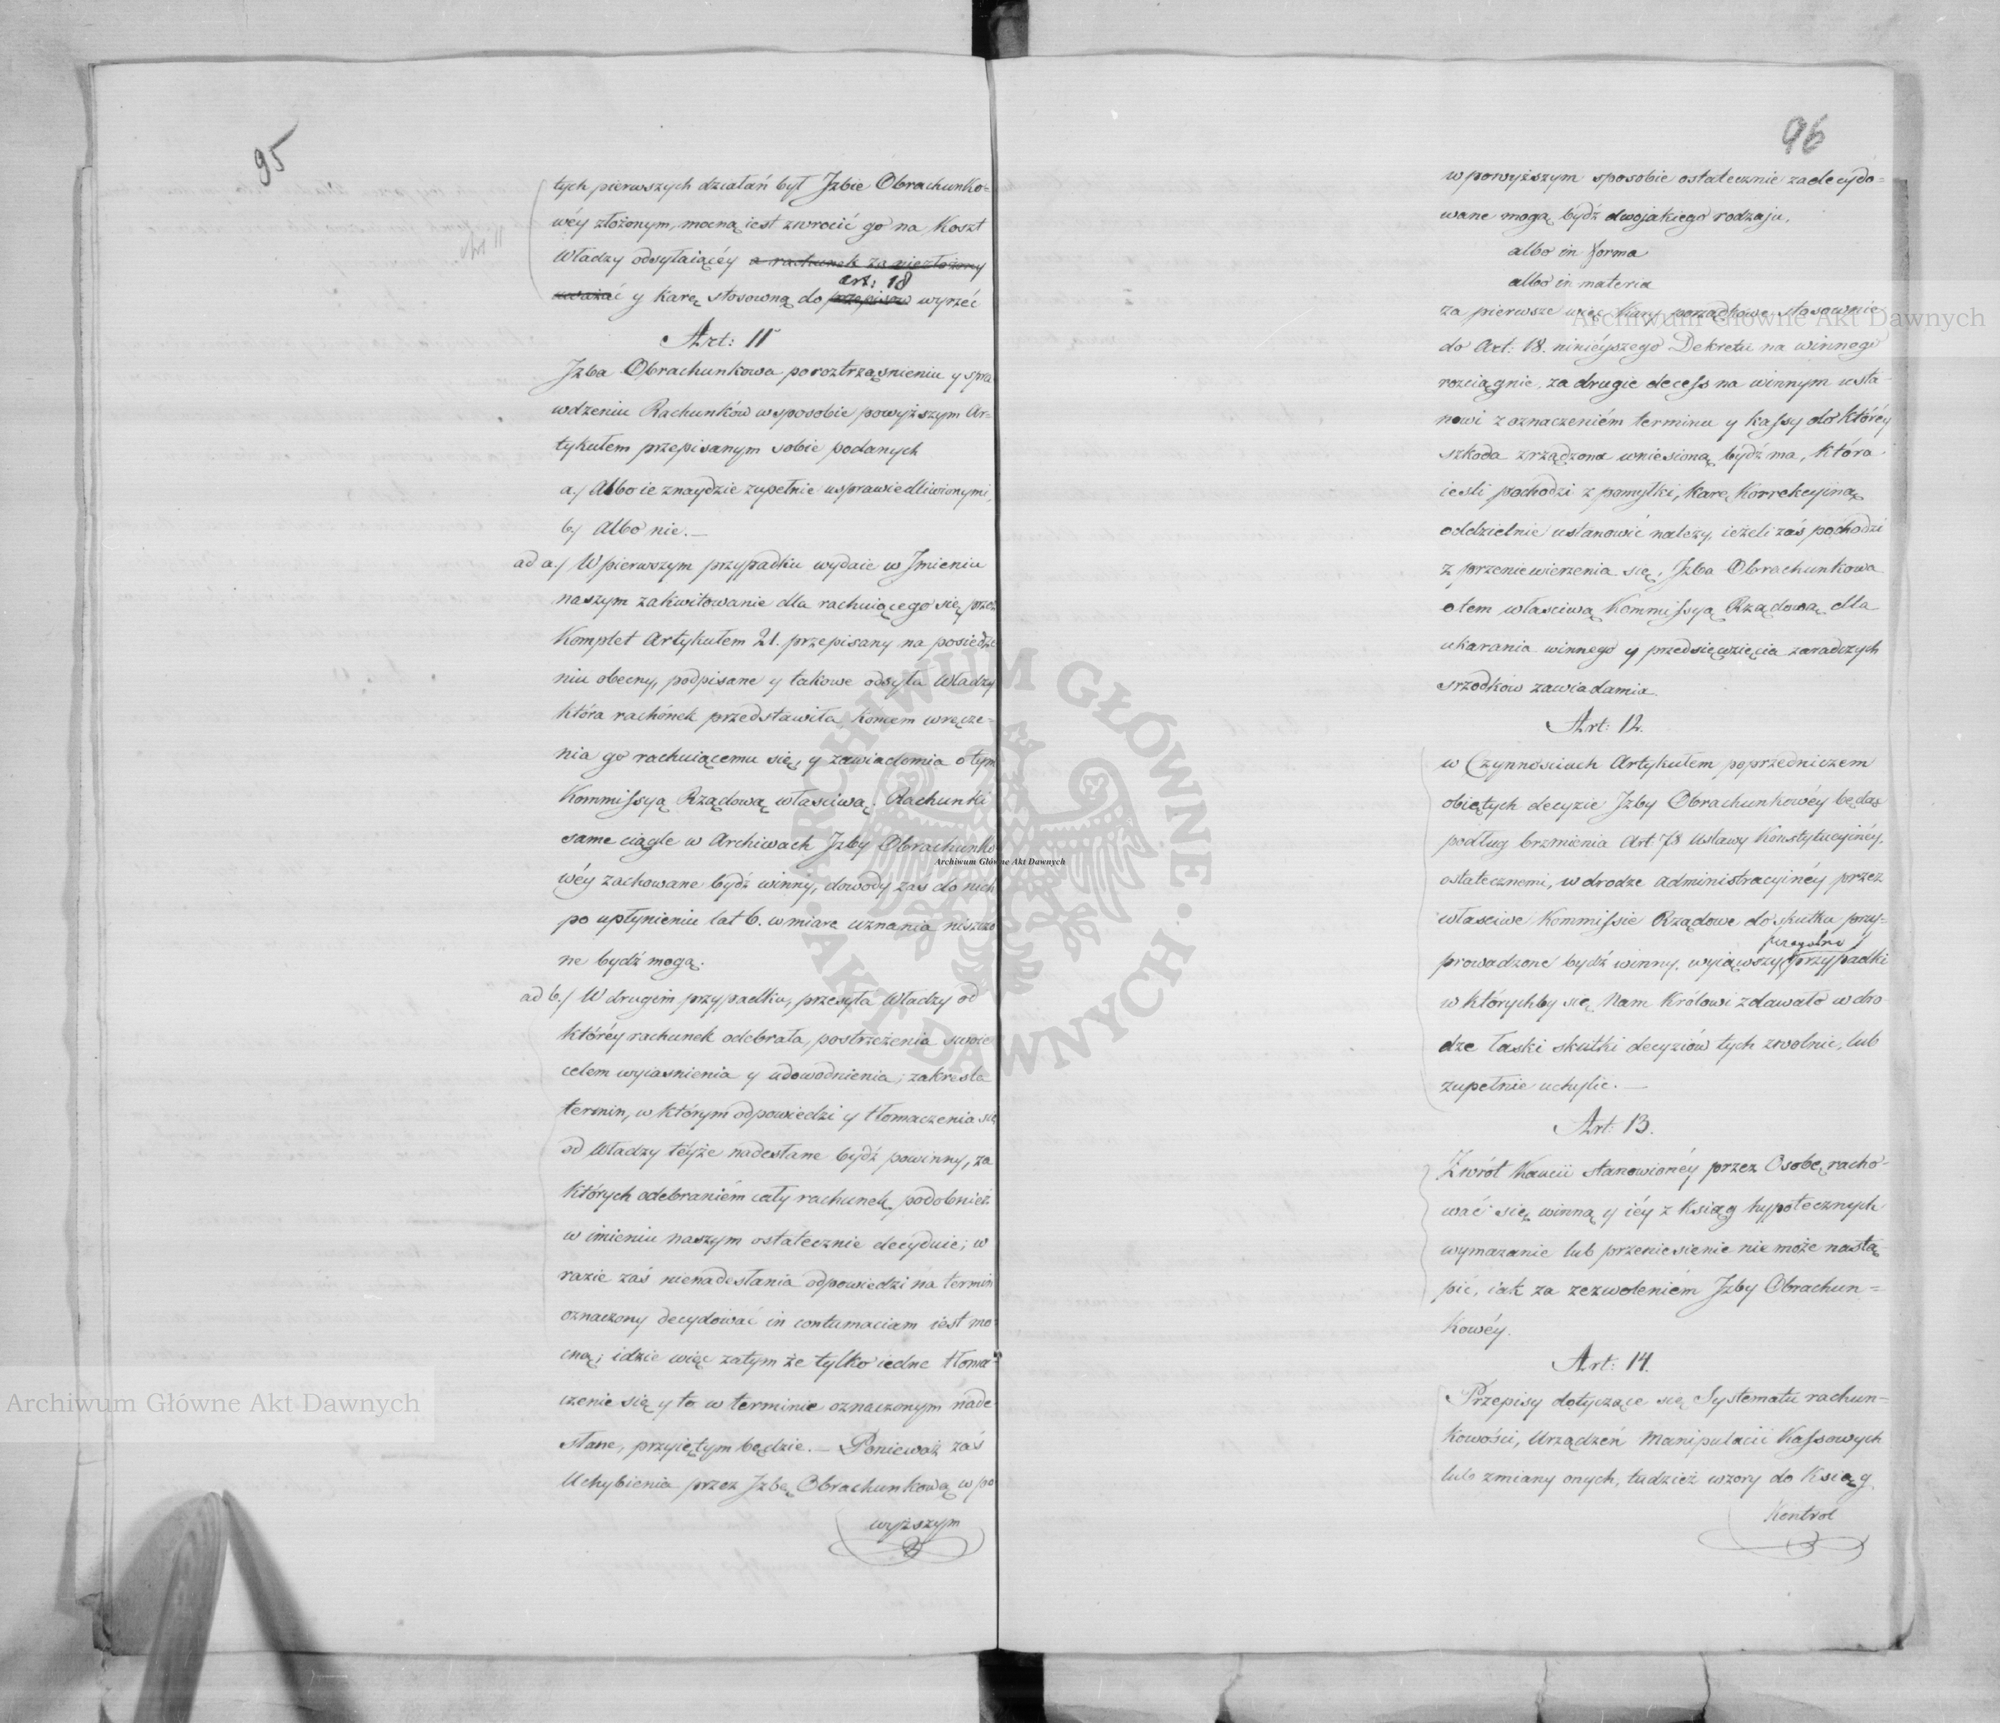 95
tych pierwszych działań był Jzbie Obrachunko=
wéy złożonym, mocną iest zwrocić go na Koszt
Władzy odsyłaiącéy a rachunek za niezłożony
art: 18
uważać y karę stosowną do przepisow wyrzéc
Art: 11
Jzba Obrachunkowa po roztrząśnieniu y spra
wdzeniu Rachunków w sposobie powyższym Ar=
tykułem przepisanym sobie podanych
a./ Albo ie znaydzie zupełnie usprawiedliwionymi,
b./ Albo nie.—
ad a./ W pierwszym przypadku wydaie w Jmieniu
naszym zakwitowanie dla rachuiącego się, przez
Komplet Artykułem 21. przepisany na posiedze
niu obecny, podpisane y takowe odsyła Władzy
która rachónek przedstawiła, koncem wręcze=
nia go rachuiącemu się, y zawiadomia o tym
Kommissyą Rządową właściwą. Rachunki
same ciągle w Archiwach Jzby Obrachunko
wéy zachowane bydź winny, dowody zaś do nich
po upłynieniu lat 6. w miarę uznania niszczo
ne bydź mogą.
ad b./ W drugim przypadku, przesyła Władzy od
któréy rachunek odebrała, postrzeżenia swoie
celem wyiaśnienia y udowodnienia; zakreśla
termin, w którym odpowiedzi y tłomaczenia się
od Władzy téyże nadesłane bydź powinny, za
których odebraniém cały rachunek, podobnież
w imieniu naszym ostatecznie decyduie; w
razie zaś nienadesłania odpowiedzi na termin
oznaczony decydować in contumaciam iest mo
cną; idzie więc zatym że tylko iedne tłoma=
czenie się y to w terminie oznaczonym nade
słane, przyiętym będzie.— Ponieważ zaś
Uchybienia przez Jzbę Obrachunkową w po
wyższym
96
w powyższym sposobie ostatecznie zadecydo=
wane mogą bydź dwojakiego rodzaju,
albo in forma
albo in materia
za pierwsze więc Kary porządkowe stosownie
do Art: 18. ninieyszego Dekretu na winnego
rozciągnie, za drugie decess na winnym usta=
nowi z oznaczeniém terminu y kassy do któréy
szkoda zrządzona wniesioną bydź ma, która
ieśli pochodzi z pomyłki, karę korrekcyiną
oddzielnie ustanowić należy, ieżeli zaś pochodzi
z przeniewierzenia się, Jzba Obrachunkowa
o tem właściwą Kommissyą Rządową dla
ukarania winnego y przedsięwzięcia zaradczych
srzodków zawiadamia.
Art: 12.
w Czynnościach Artykułem poprzedniczem
obiętych decyzie Jzby Obrachunkowéy będąc
podług brzmienia Art: 78 Ustawy Konstytucyinéy,
ostatecznemi, w drodze administracyinéy przez
właściwe Kommissie Rządowe do skutku przy=
prowadzone bydź winny, wyiąwszy przypadki
w którychby się Nam Królowi zdawało w dro=
dze łaski skutki decyziów tych zwolnić, lub
zupełnie uchylić.—
Art: 13.
Zwrót Kaucii stanowionéy przez Osobę racho=
wać się winną y iéy z Ksiąg hypotecznych
wymazanie lub przeniesienie nie może nastą
pić, iak za zezwoleniém Jzby Obrachun=
kowéy.
Art: 14.
Przepisy dotyczące się Systematu rachun=
kowości, Urządzeń Manipulacii Kassowych
lub zmiany onych, tudzież wzory do Ksiąg
Kontrol
Archiwum Główne Akt Dawnych
Archiwum Główne Akt Dawnych
Archiwum Główne Akt Dawnych
ARCHIWUM GŁÓWNE · AKT DAWNYCH ·